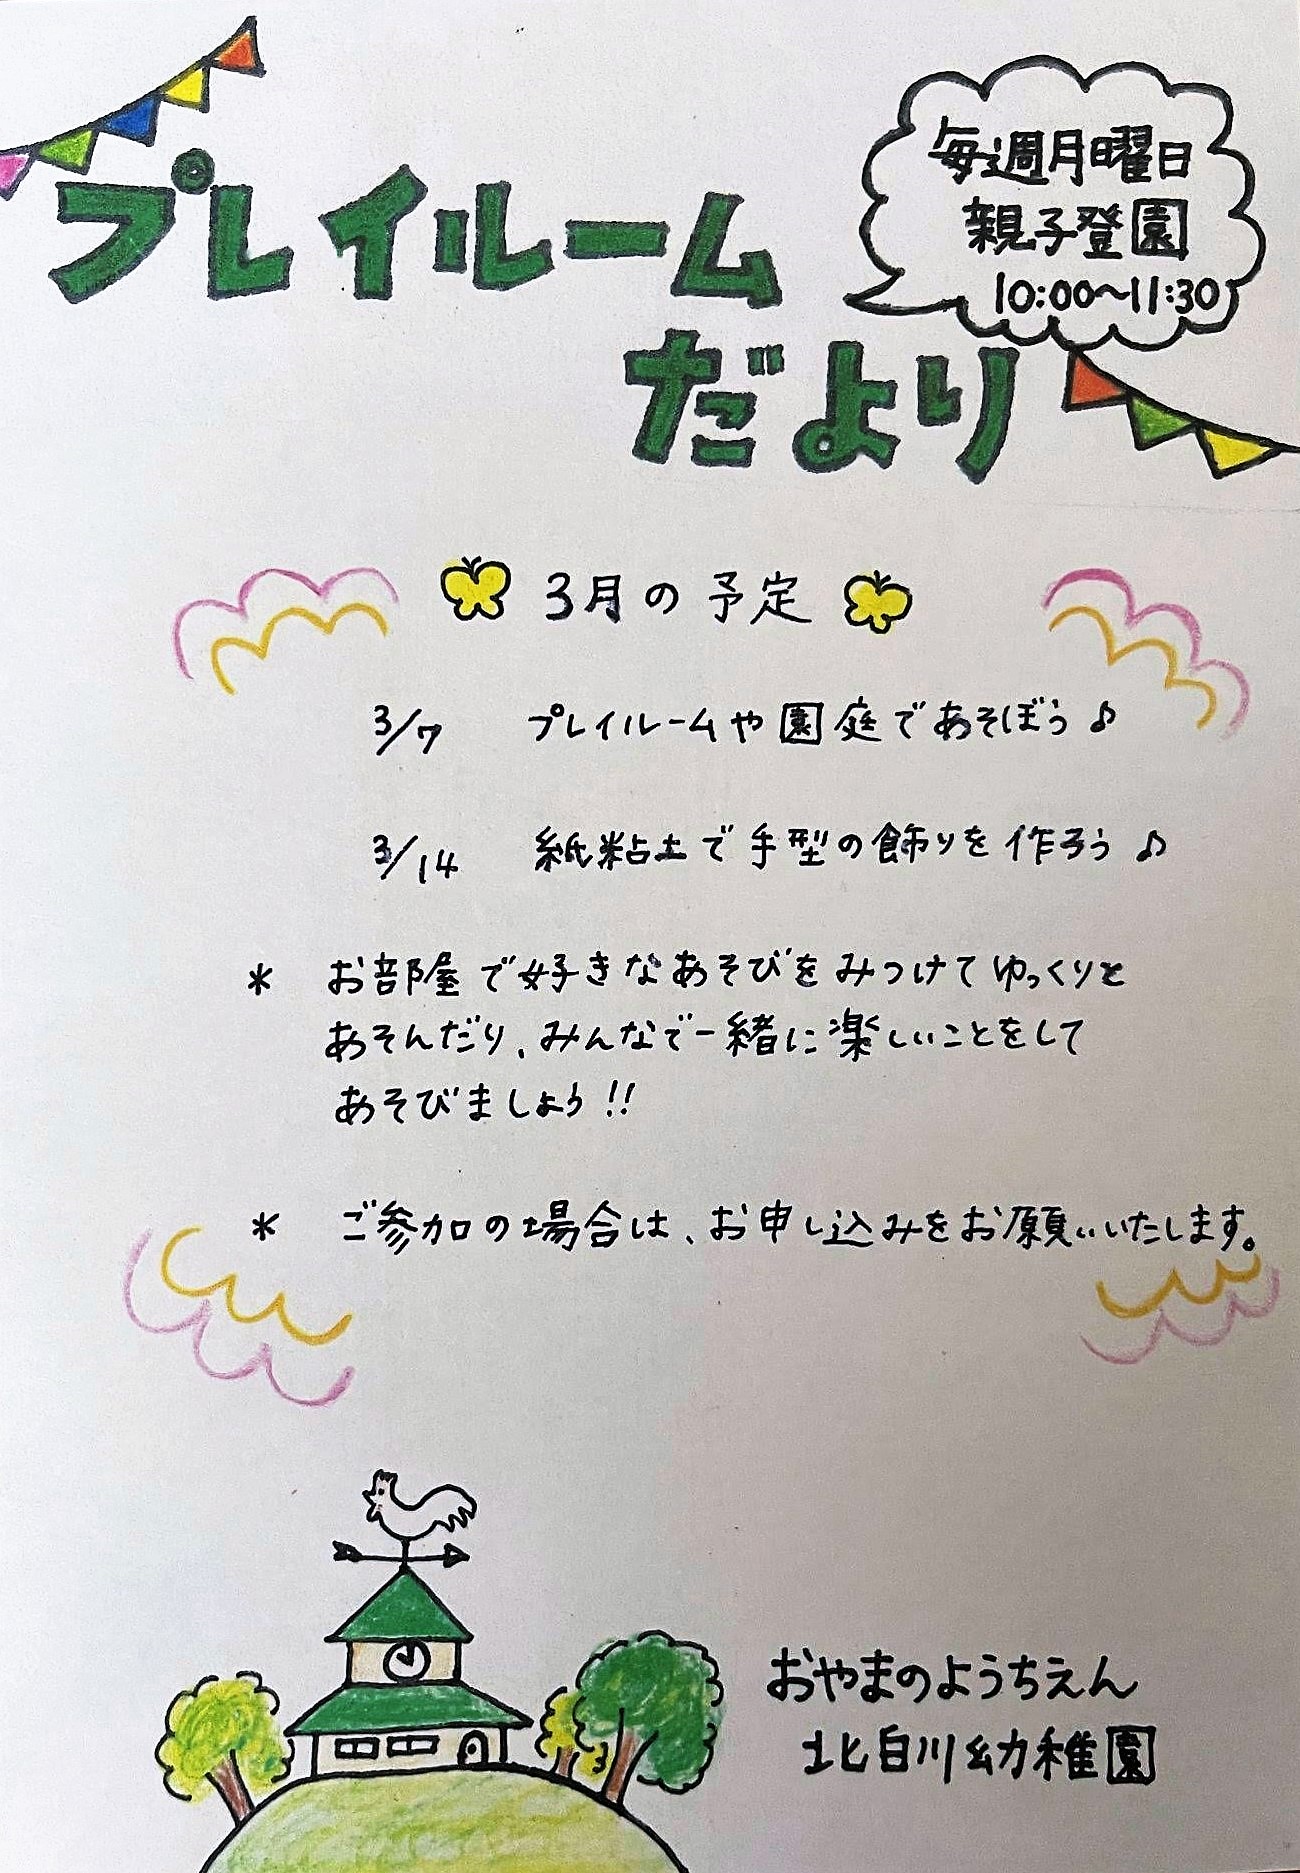 プレイルーム
だより
毎週月曜日
親子登園
10:00〜11:30
3月の予定
3/7 プレイルームや園庭であそぼう♪
3/14 紙粘土で手型の飾りを作ろう♪
* お部屋で好きなあそびをみつけてゆっくりと
あそんだり、みんなで一緒に楽しいことをして
あそびましょう!!
* ご参加の場合は、お申し込みをお願いいたします。
おやまのようちえん
北白川幼稚園